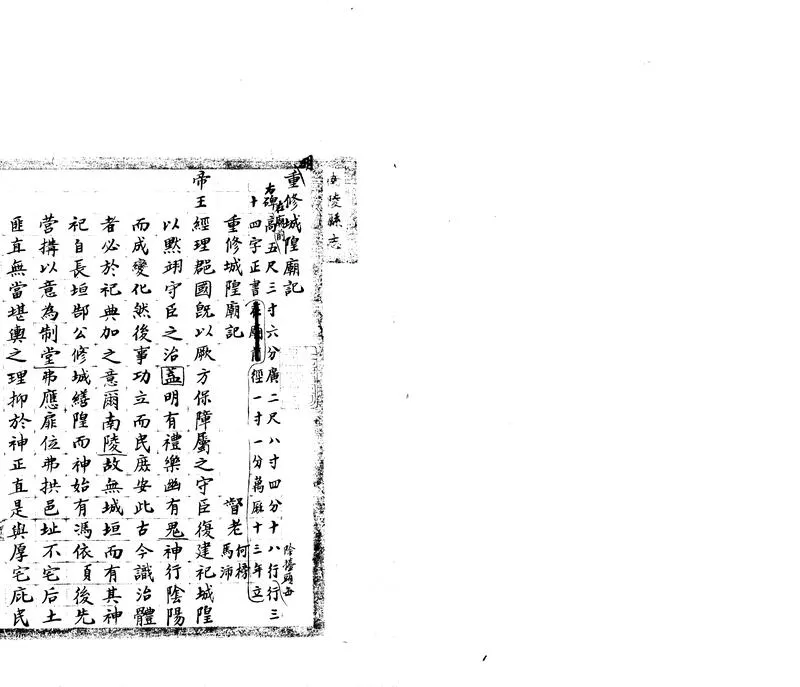 南陵縣志
明
重修城隍廟記
右碑高五尺三寸六分廣二尺八寸四分十八行行三
在廟前
十四字正書在廟前徑一寸一分萬厯十三年立
重修城隍廟記
督老何榜
馬沛
帝王經理郡國旣以厥方保障屬之守臣復建祀城隍
以默翊守臣之治蓋明有禮樂幽有鬼神行陰陽
而成變化然後事功立而民庶安此古今識治體
者必於祀典加之意爾南陵故無城垣而有其神
祀自長垣郜公修城繕隍而神始有馮依頁後先
營搆以意為制堂弗應扉位弗拱邑址不宅后土
匪直無當堪輿之理抑於神正直是與厚宅庇民